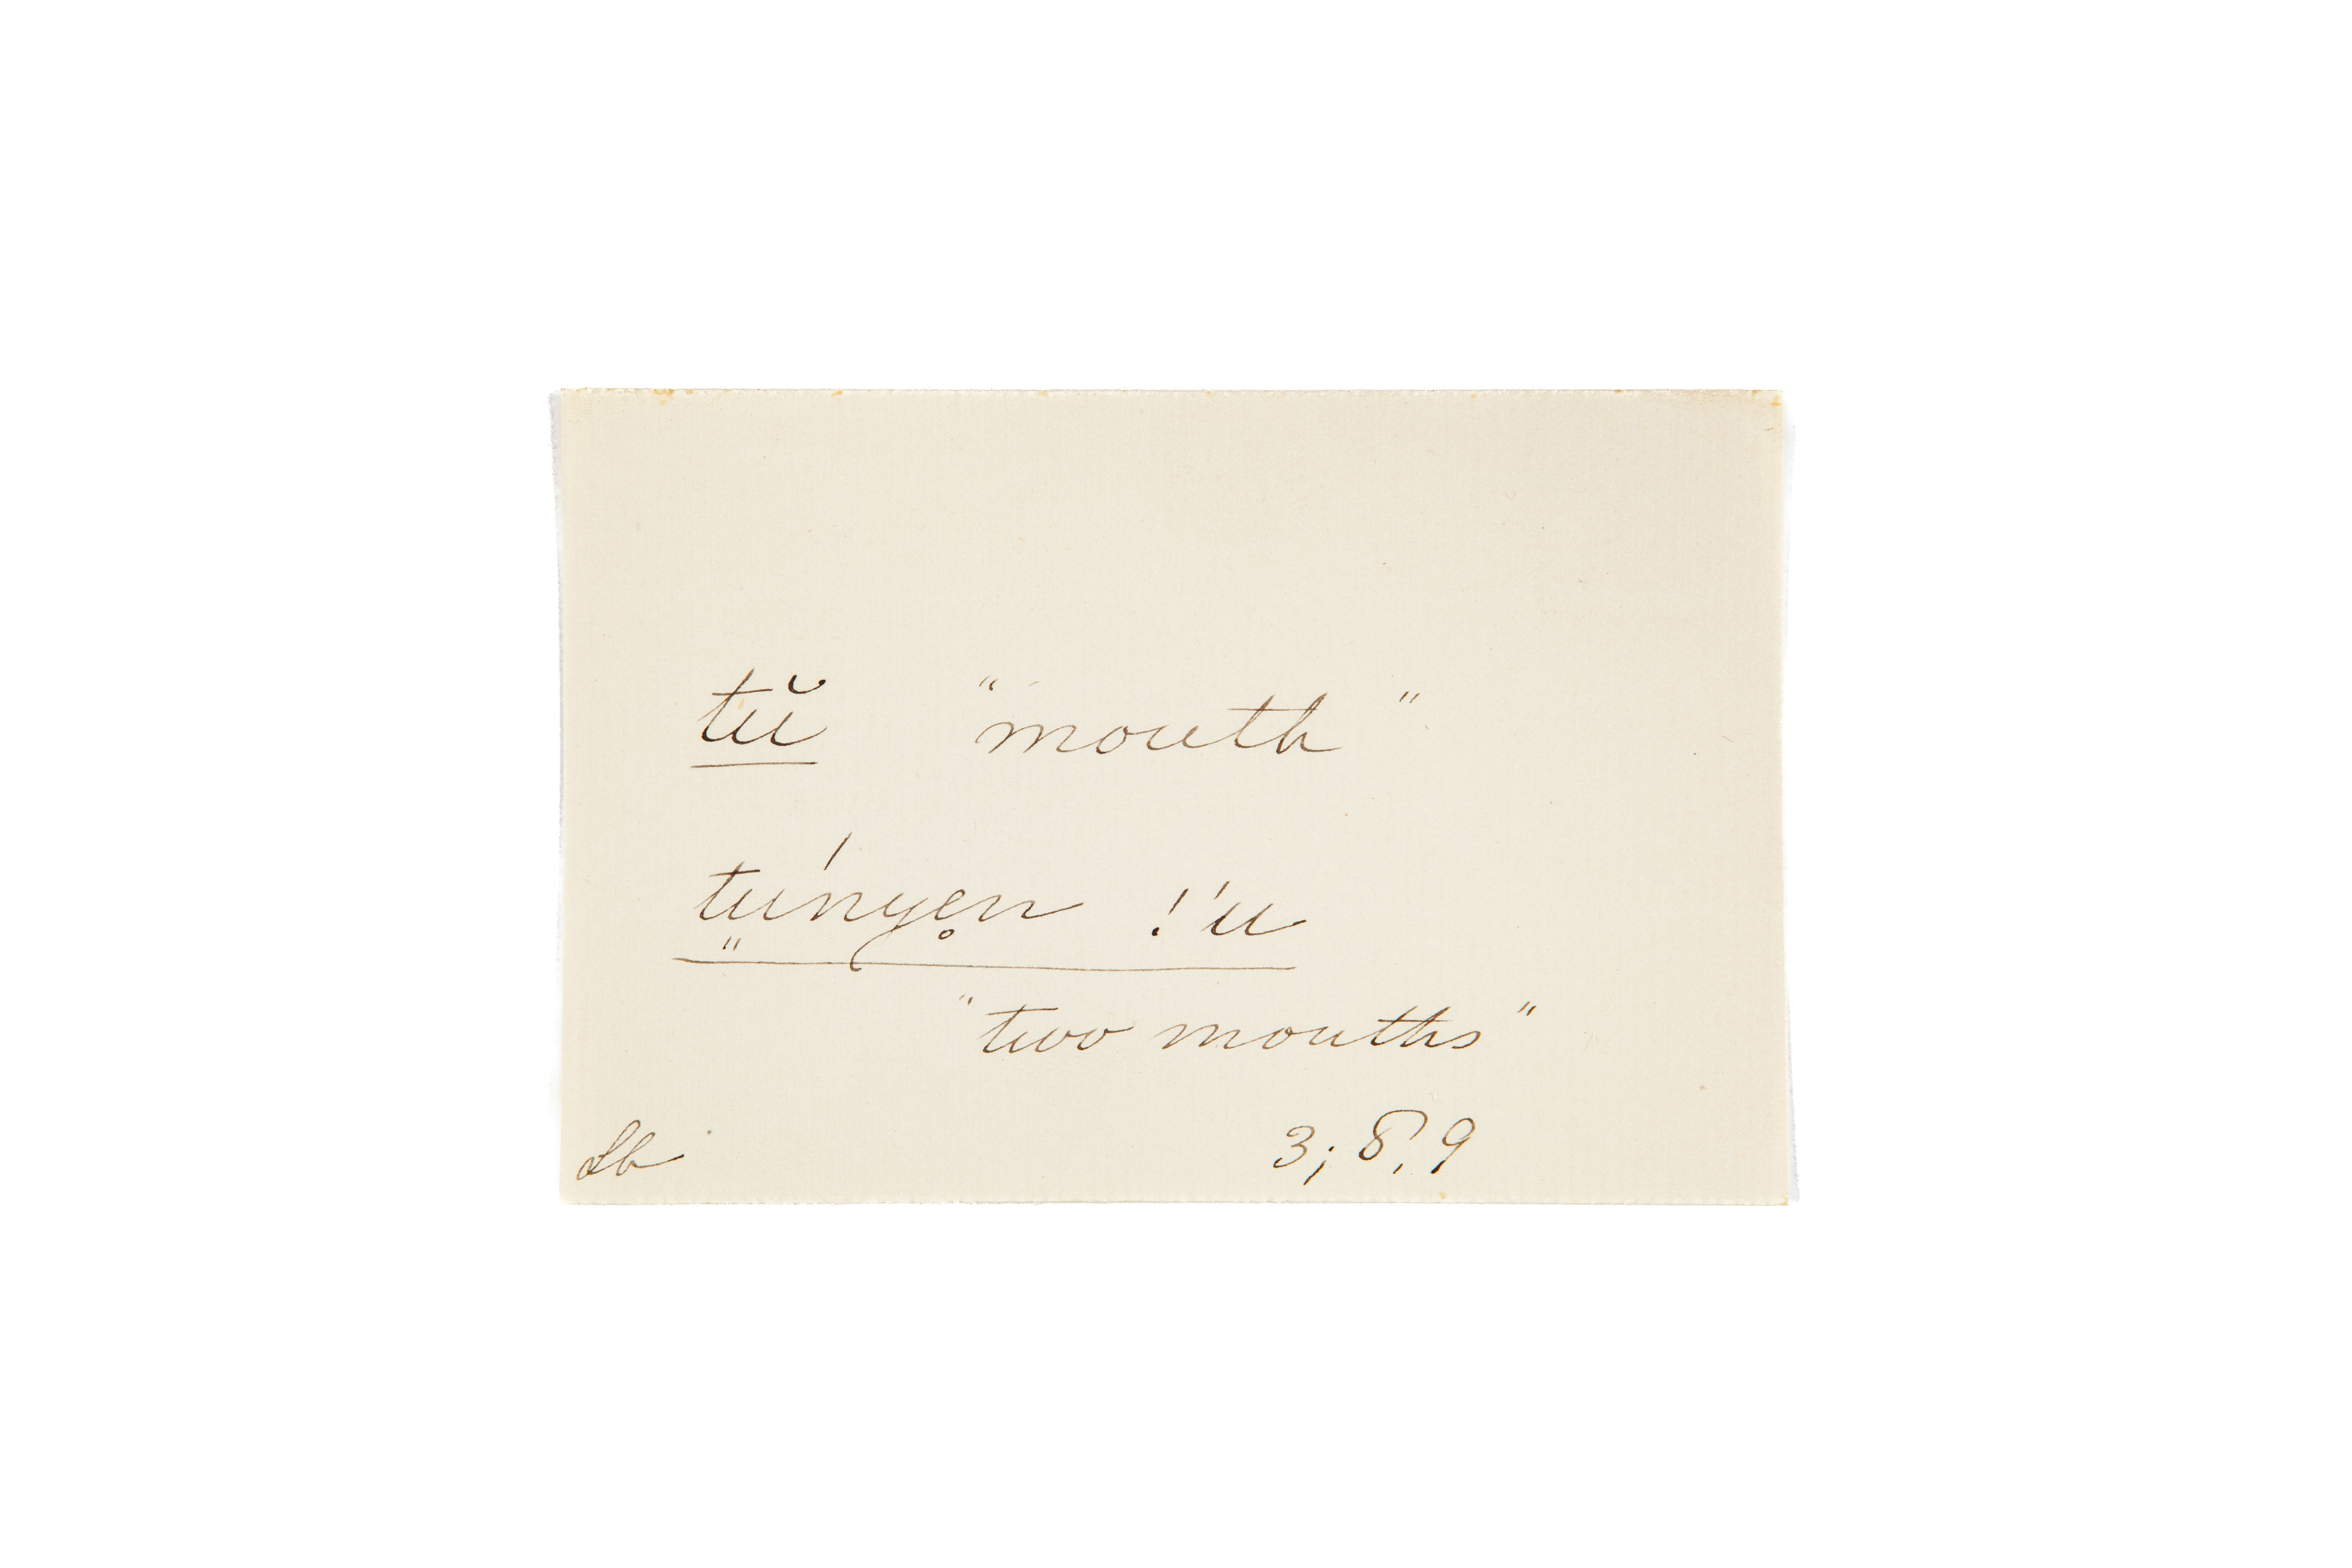 tŭ "mouth"
tṳ́nyẹn̥ ǃ'u
"two mouths"
Lb 3; 8, 9